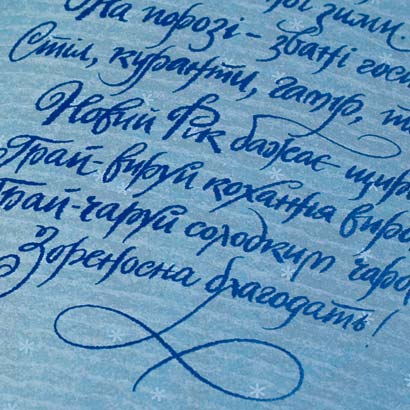 На порозі – звані гос
Стіл, куранти, гамір, т
Новий Рік бажає щир
Грай-вируй кохання виро
Грай-чаруй солодким чаро
Зореносна благодать!